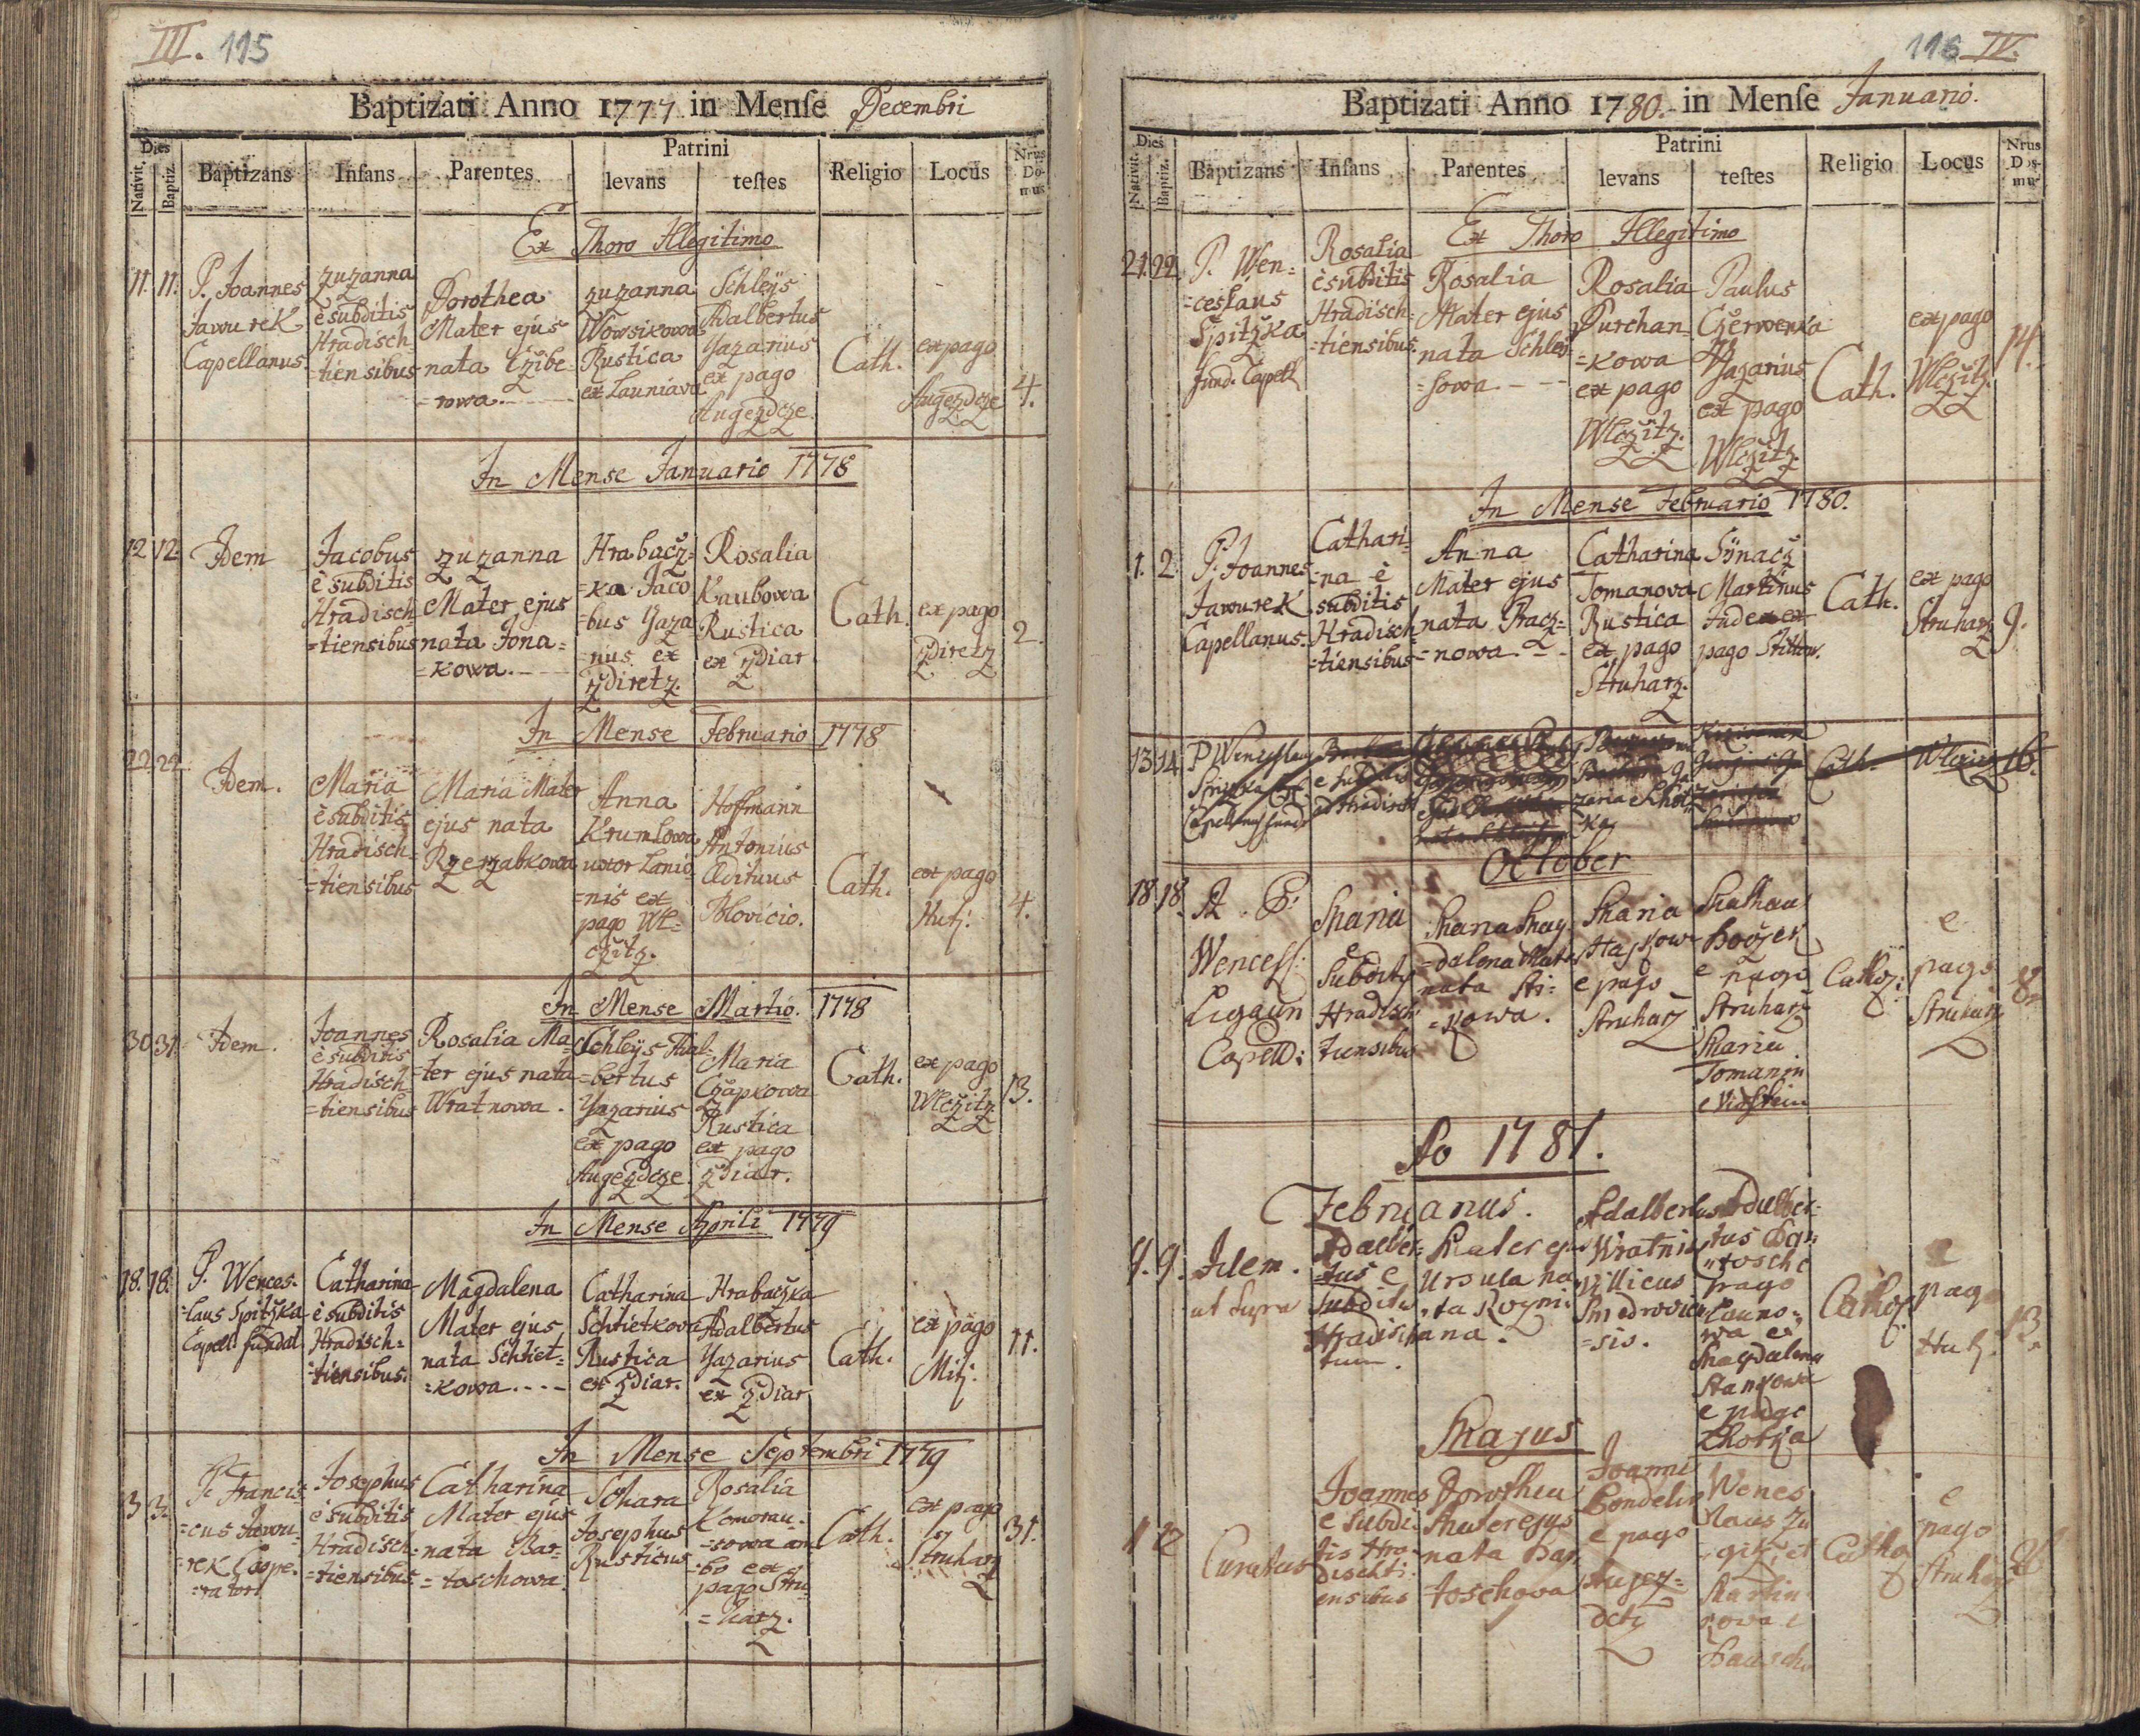 III. 115
Baptizati Anno 1777 in Mense Decembri
Dies
Nativit.
Baptiz.
Baptizans
Infans
Parentes
Patrini
levans
testes
Religio
Locus
Nrus Do-mus
Ex Thoro Illegitimo
11. 11.
P. Joannes
Jawurek
Capellanus
Zuzanna
è subditis
Hradisch-
=tiensibus
Dorothea
Mater ejus
nata Czibe-
=rowa.
Zuzanna
Wowsikowa
Rustica
ex Launiava
Schleÿs
Adalbertus
Yazarius
ex pago
Augezdcze
Cath.
ex pago
Augezdcze
4.
In Mense Januario 1778
12 12
Idem
Jacobus
è subditis
Hradisch-
=tiensibus
Zuzanna
Mater ejus
nata Jona=
=kowa.
Hrabacz=
=ka Jaco
=bus Yaza
=rius ex
Zdiretz.
Rosalia
Kaubowa
Rustica
ex Zdiar
Cath.
ex pago
Zdiretz
2.
In Mense Februario 1778
22 22
Idem.
Maria
è subditis
Hradisch-
=tiensibus
Maria Mater
ejus nata
Rzerzabkowa
Anna
Krumlowa
uxor Lanio
=nis ex
pago Wl=
cžitz.
Hoffmann
Antonius
Ædituus
Blovicio.
Cath.
ex pago
Hutj.
4.
In Mense Martio. 1778
30 31
Idem.
Joannes
è subditis
Hradisch
=tiensibus
Rosalia Ma=
=ter ejus nata
Wratnowa.
Schleÿs Adal=
=bertus
Yazarius
ex pago
Augezdcze.
Maria
Czapkowa
Rustica
ex pago
Zdiar.
Cath.
ex pago
Wlcžitz
13.
In Mense Aprili 1779
18. 18.
P. Wences-
=laus Spitžka
Capell. fundat.
Catharina
è subditis
Hradisch=
=tiensibus.
Magdalena
Mater ejus
nata Schtiet=
=kowa.
Catharina
Schtietkova
Rustica
ex Zdiar.
Hrabaczka
Adalbertus
Yazarius
ex Zdiar
Cath.
ex pago
Mitj.
11.
In Mense Septembri 1779
3 3.
P. Francis-
=cus Jawu-
=rek Coope-
=rator
Josephus
è subditis
Hradisch-
=tiensibus
Catharina
Mater ejus
nata Bar=
=toschowa.
Schara
Josephus
Rusticus
Rosalia
=sowa am
=bo ex
pago Stru
=harz.
Cath.
ex pago
Struharz
31.
116 IV.
Baptizati Anno 1780. in Mense Januario.
Dies
Nativit.
Baptiz.
Baptizans
Infans
Parentes
Patrini
levans
testes
Religio
Locus
Nrus Do-mus
Ex Thoro Illegitimo
21. 22.
P. Wen=
=ceslaus
Spitžka
fund. Capell
Rosalia
è subditis
Hradisch-
=tiensibus.
Rosalia
Mater ejus
nata Schleÿ
=sowa.
Rosalia
Purchan=
=kowa
ex pago
Wlcžitz.
Paulus
Czerwenka
Yazarius
ex pago
Wlcžitz
Cath.
ex pago
Wlcžitz.
14.
In Mense Februario 1780.
1. 2.
P. Joannes
Jawurek
Capellanus.
Cathari=
=na è
subditis
Hradisch=
=tiensibus
Anna
Mater ejus
nata Pracz=
=nowa.
Catharina
Tomanova
Rustica
ex pago
Struharz.
Sÿnacž
Martinus
Judex ex
pago Stittow.
Cath.
ex pago
Struharz
9.
13 14
P Wenceslaus
Spizka
e subditis
Cath.
Wlczicz
16.
October
18 18.
A. P.
Wencesl:
Ligaun
Capell:
Maria
e
Subditis
Hradisch
tiensibus
Maria Mag
=dalena Mater
nata Sti=
=kowa.
Maria
e pago
Struharz
e pago
Struharz
Maria
Tomanin
Cathoz:
e
pago
Struharz
8.
Ao 1781.
Februarius.
9. 9.
Idem.
ut supra
Adalber=
=tus e
Subditis
Hradisch
tium.
Mater ejus
Ursula na
=ta
Adalbertus
Wratni
Villicus
=sis.
Adalber=
tus Bar=
tosch e
pago
Launo=
wa et
Magdalena
Stankowa
e pago
Lhotka
Cathoz.
e
pago
Hutj.
13.
Majus
11 12
Curatus
Joannes
e Subdi
tis Hra=
dischti
ensibus
Dorothea
Mater ejus
nata Bar
toschowa
Joannes
e pago
Augez=
dctz
Wences
laus
Martin
kowa e
Catho
e
pago
Struharz